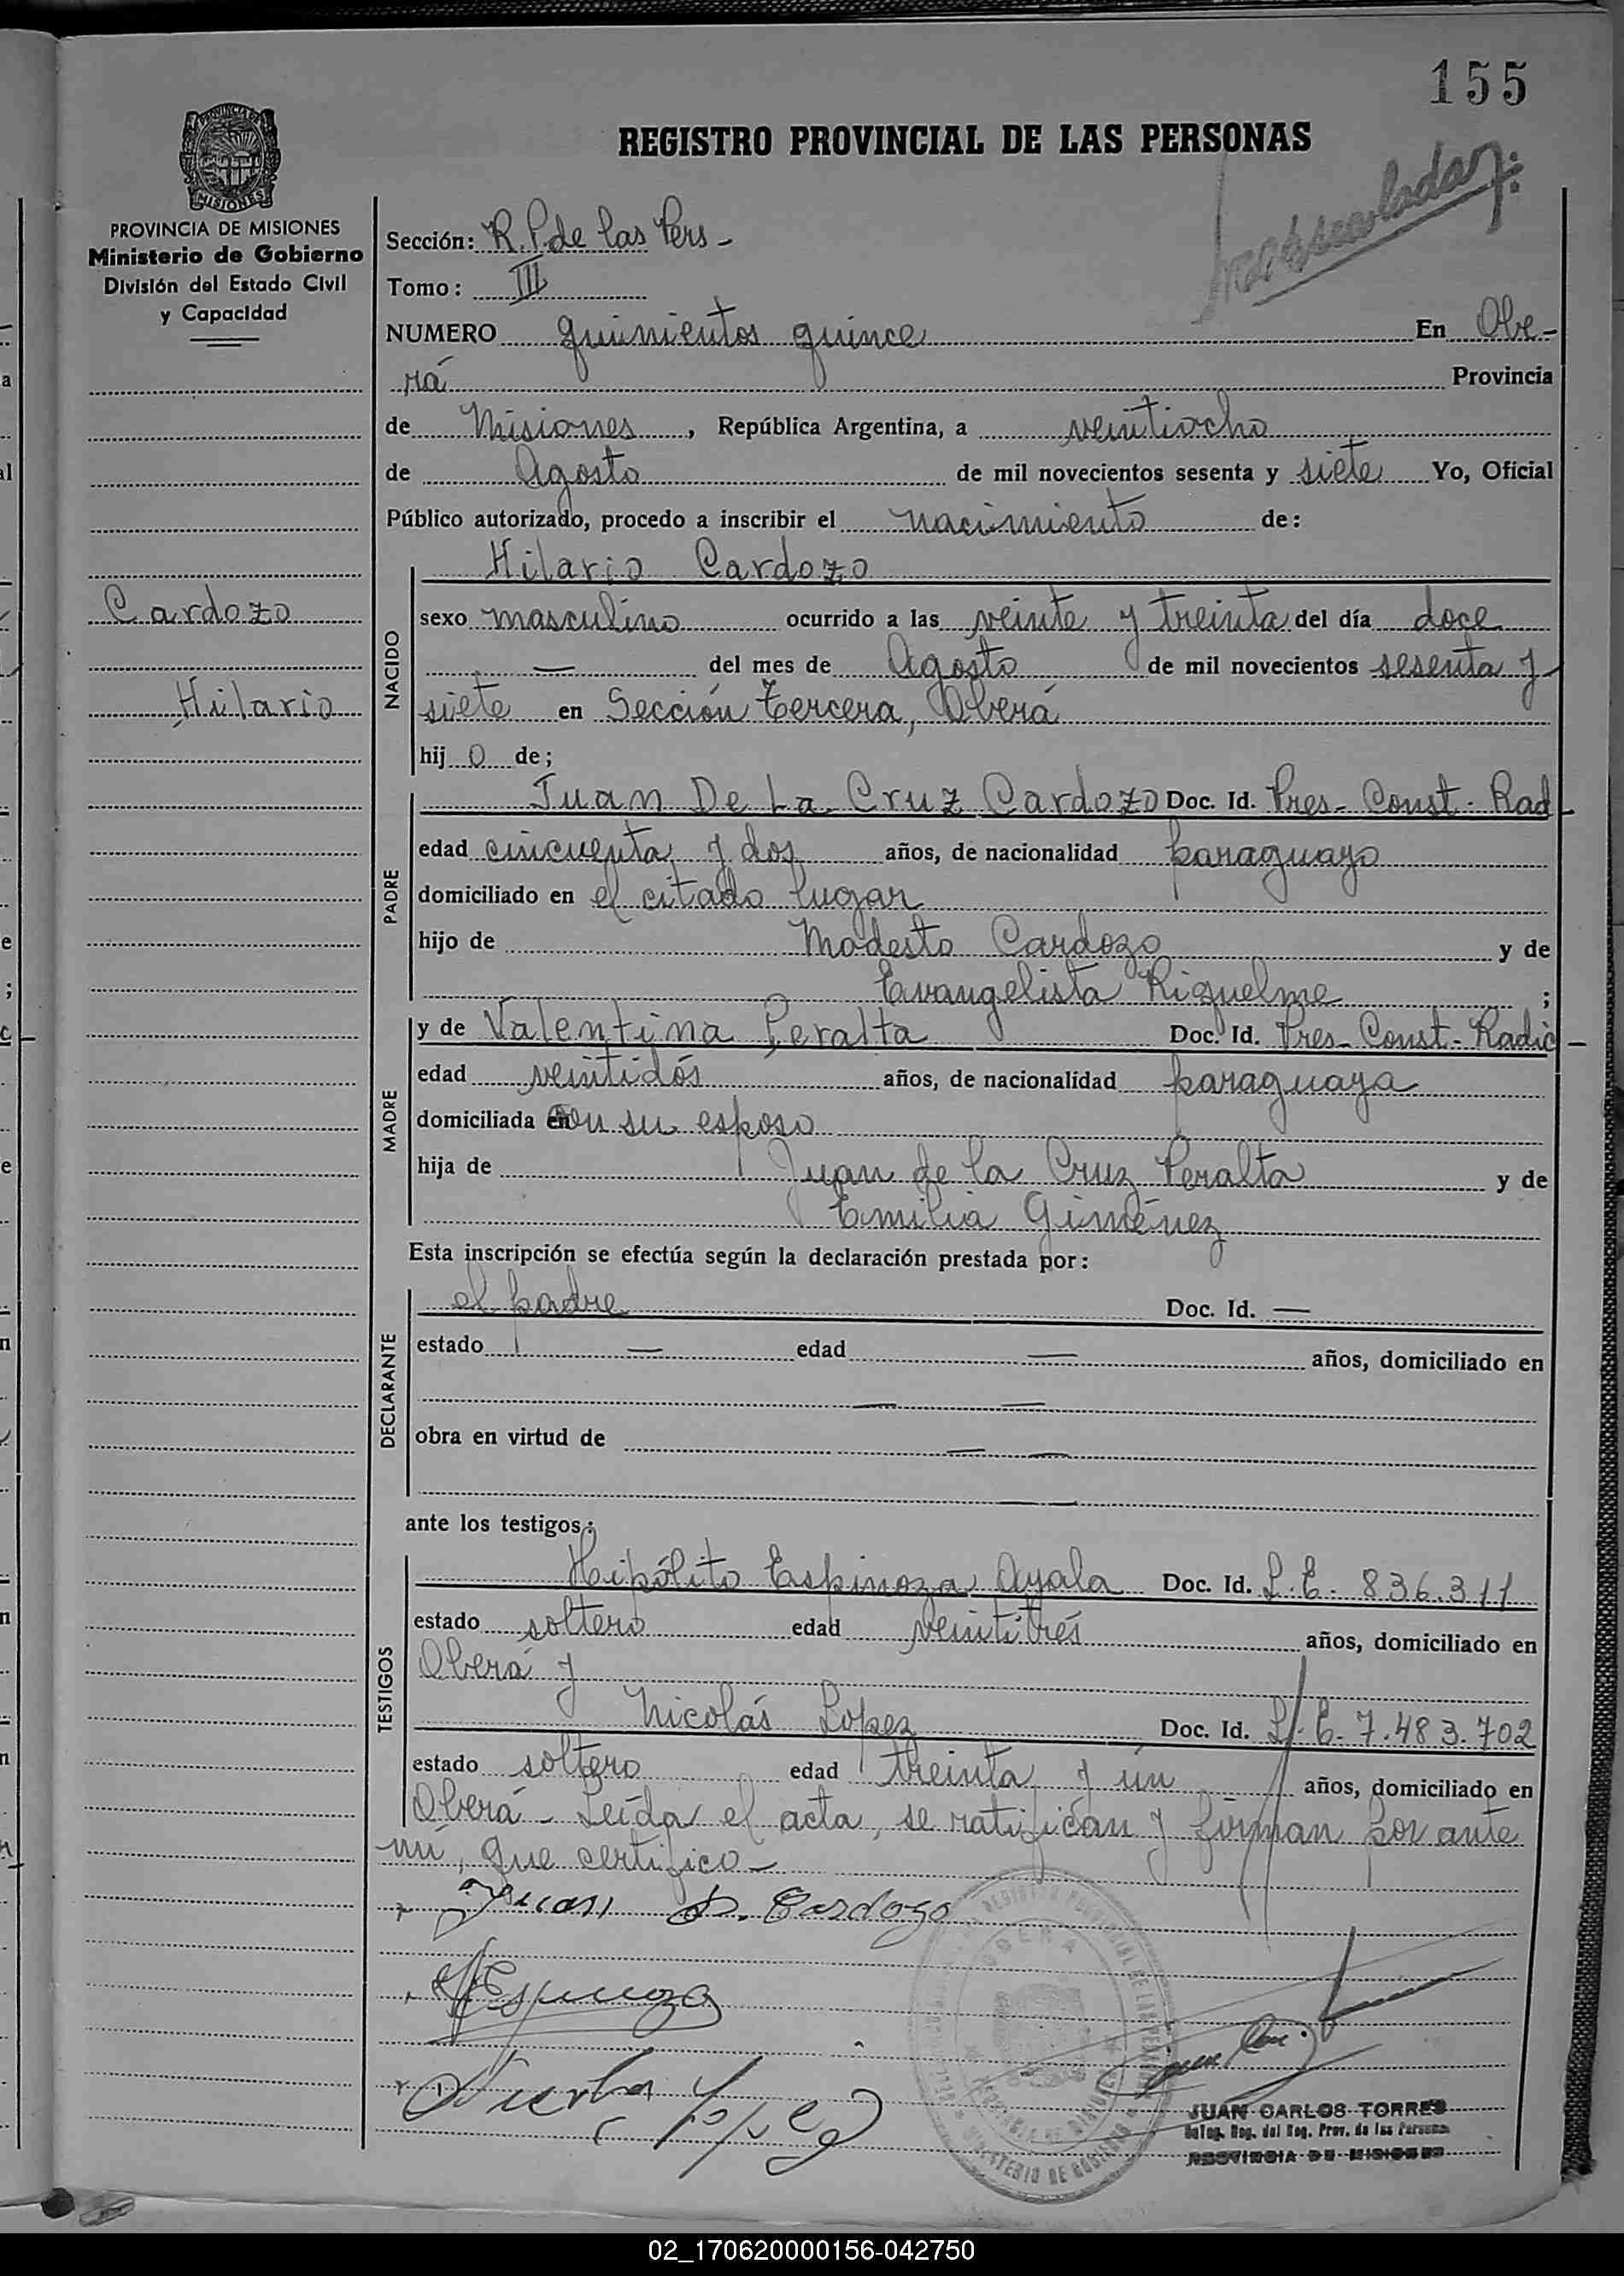 155
REGISTRO PROVINCIAL DE LAS PERSONAS
MISIONES
PROVINCIA DE MISIONES
Ministerio de Gobierno
División del Estado Civil
y Capacidad
Sección: R. P. de las Pers -
Tomo: III
NUMERO quinientos quince En Obe-
rá Provincia
de Misiones, República Argentina, a veintiocho
de Agosto de mil novecientos sesenta y siete Yo, Oficial
Público autorizado, procedo a inscribir el nacimiento de:
Hilario Cardozo
Cardozo
Hilario
NACIDO
sexo masculino ocurrido a las veinte y treinta del día doce
— del mes de Agosto de mil novecientos sesenta y
siete en Sección tercera, Oberá
hij o de;
PADRE
Juan De La Cruz Cardozo Doc. Id. Pres- Const- Rad-
edad cincuenta y dos años, de nacionalidad paraguayo
domiciliado en el citado lugar
hijo de Modesto Cardozo y de
Evangelista Riquelme ;
MADRE
y de Valentina Peralta Doc. Id. Pres- Const- Radic-
edad veintidós años, de nacionalidad paraguaya
domiciliada con su esposo
hija de Juan de la Cruz Peralta y de
Emilia Giménez
Esta inscripción se efectúa según la declaración prestada por:
DECLARANTE
el padre Doc. Id. —
estado — edad — años, domiciliado en
— —
obra en virtud de — —
—
ante los testigos:
TESTIGOS
Hipólito Espinoza Ayala Doc. Id. L. E. 836.311
estado soltero edad veintitrés años, domiciliado en
Oberá y
Nicolás Lopez Doc. Id. L. E. 7.483.702
estado soltero edad treinta y ún años, domiciliado en
Oberá - Leída el acta, se ratifican y firman por ante
mí, que certifico -
Juan D. Cardozo
HEspinoza
Lopez
JUAN CARLOS TORRES
PROVINCIA DE MISIONES
02_170620000156-042750